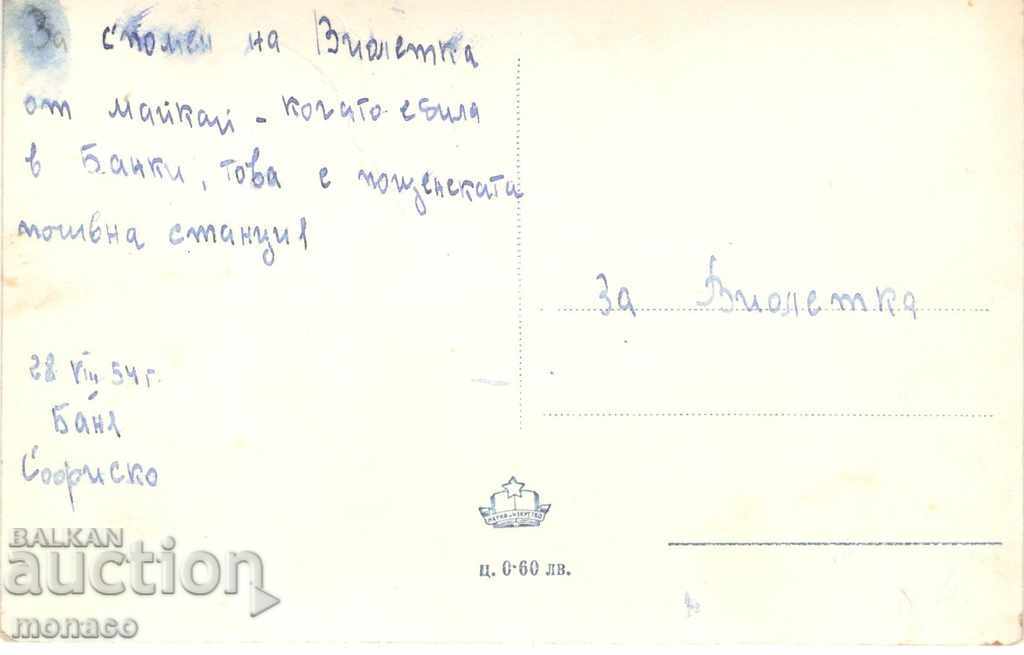 За спомен на Виолетка
от майкай - когато е била
в Банки, това е пощенската
пошивна станция
28 VIII 54 г.
Баня
Софиско
За Виолетка
НАУКА И ИЗКУСТВО
ц. 0·60 лв.
BALKAN
auction
monaco